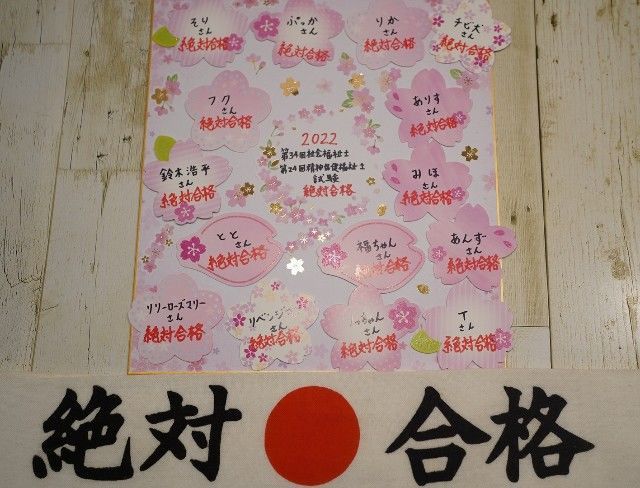 そり
さん
絶対合格
ぷっか
さん
絶対合格
りか
さん
絶対合格
チビ犬
さん
絶対合格
フク
さん
絶対合格
ありす
さん
絶対合格
2022
第34回社会福祉士
第24回精神保健福祉士
試験
絶対合格
鈴木浩平
さん
絶対合格
みほ
さん
絶対合格
とと
さん
絶対合格
福ちゃん
さん
絶対合格
あんず
さん
絶対合格
リリーローズマリー
さん
絶対合格
リベンジ
さん
絶対合格
っちゃん
さん
絶対合格
T
さん
絶対合格
絶対 合格